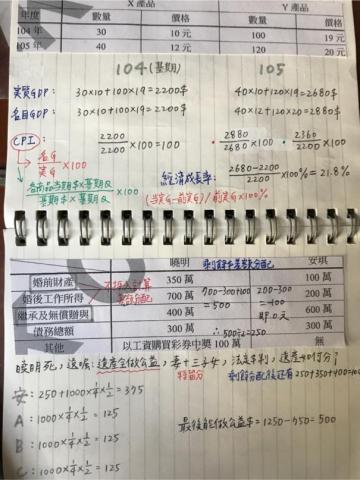 X產品 Y產品
年度 數量 價格 數量 價格
104年 30 10元 100 19元
105年 40 12元 120 20元
104(基期) 105
實質GDP: 30×10+100×19=2200$ 40×10+120×19=2680$
名目GDP: 30×10+100×19=2200$ 40×12+120×20=2880$
CPI: 2200/2200×100=100 2880/2680×100 2360/2200×100
名G/實G×100
各商品當期$×基期Q/基期$×基期Q×100
經濟成長率: 2680-2200/2200×100%=21.8%
(當實G-前實G)/前實G×100%
曉明 安琪
婚前財產 350萬 100萬
婚後工作所得 700萬 700-300+100=500 200-300=-100 即0元 200萬
繼承及無償贈與 400萬 600萬
債務總額 300萬 ∴500÷2=250 300萬
其他 以工資購買彩券中獎100萬 無
曉明死,遺囑:遺產全做公益,妻+三子女,法定多利,遺產如何分?
特留分 剩餘分配後還有250+350+400=1000
安:250+1000×1/4×1/2=375
A:1000×1/4×1/2=125
B:1000×1/4×1/2=125
C:1000×1/4×1/2=125
最後能做公益$=1250-750=500